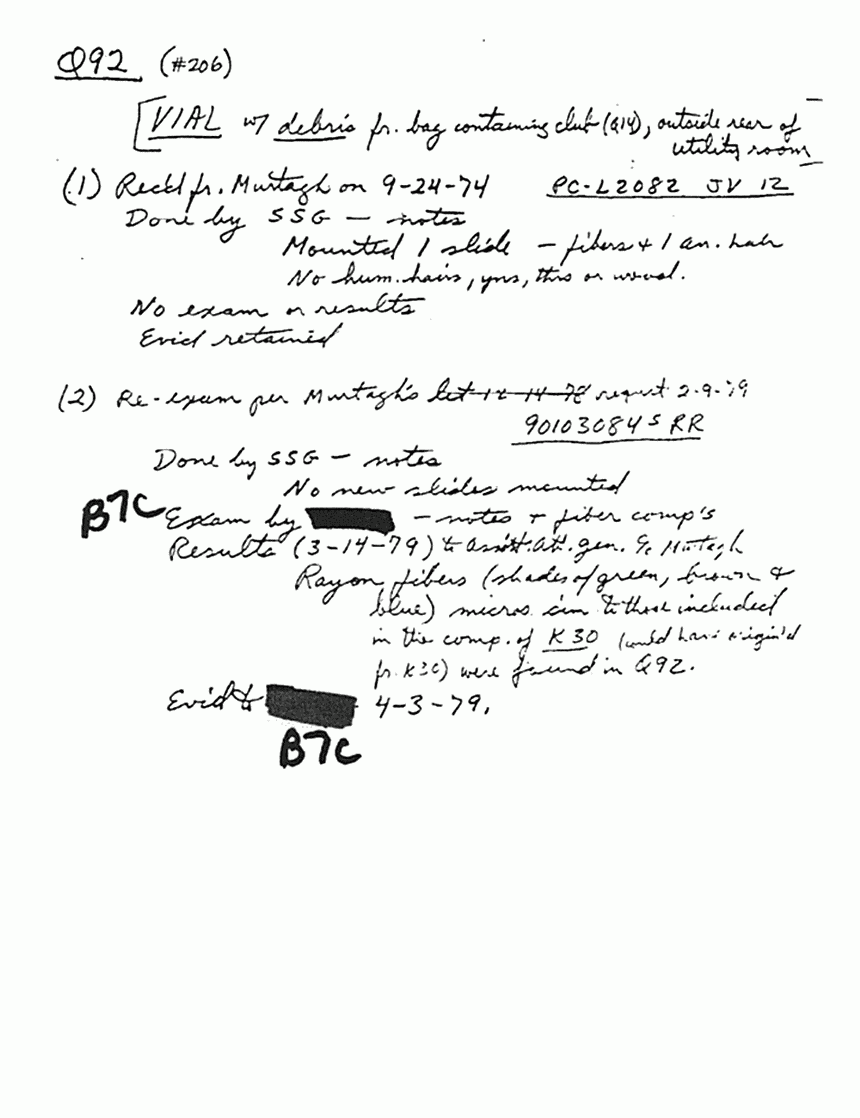 Q92 (#206)
[VIAL w/ debris fr. bag containing club (Q14), outside rear of
utility room]
(1) Rec'd fr. Murtagh on 9-24-74 PC-L2082 JV 12
Done by SSG — notes
Mounted 1 slide — fibers + 1 an. hair
No hum. hairs, yns, thrs or wood.
No exam or results
Evid retained
(2) Re-exam per Murtagh's let 12-14-78 request 2-9-79
90103084 S RR
Done by SSG — notes
No new slides mounted
B7C Exam by — notes + fiber comp's
Results (3-14-79) to Assit. At. gen. Murtagh
Rayon fibers (shades of green, brown &
blue) micros sim to those included
in the comp. of K30 (could have origin'd
fr. K30) were found in Q92.
Evid to 4-3-79.
B7C